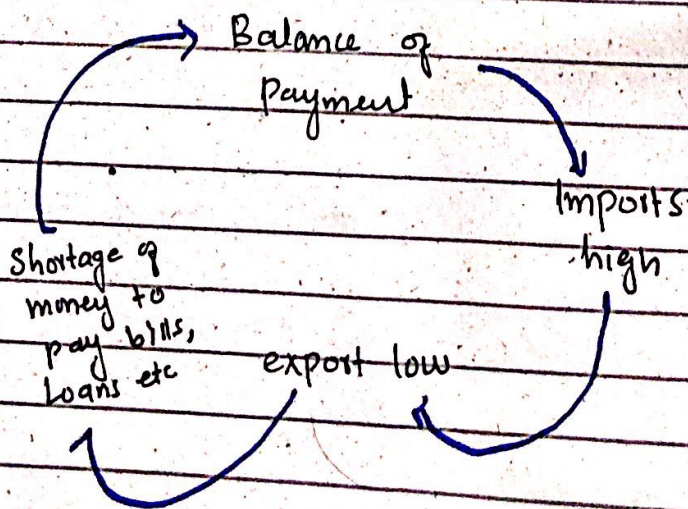 Balance of
Payment
Imports
high
export low
Shortage of
money to
pay bills,
Loans etc